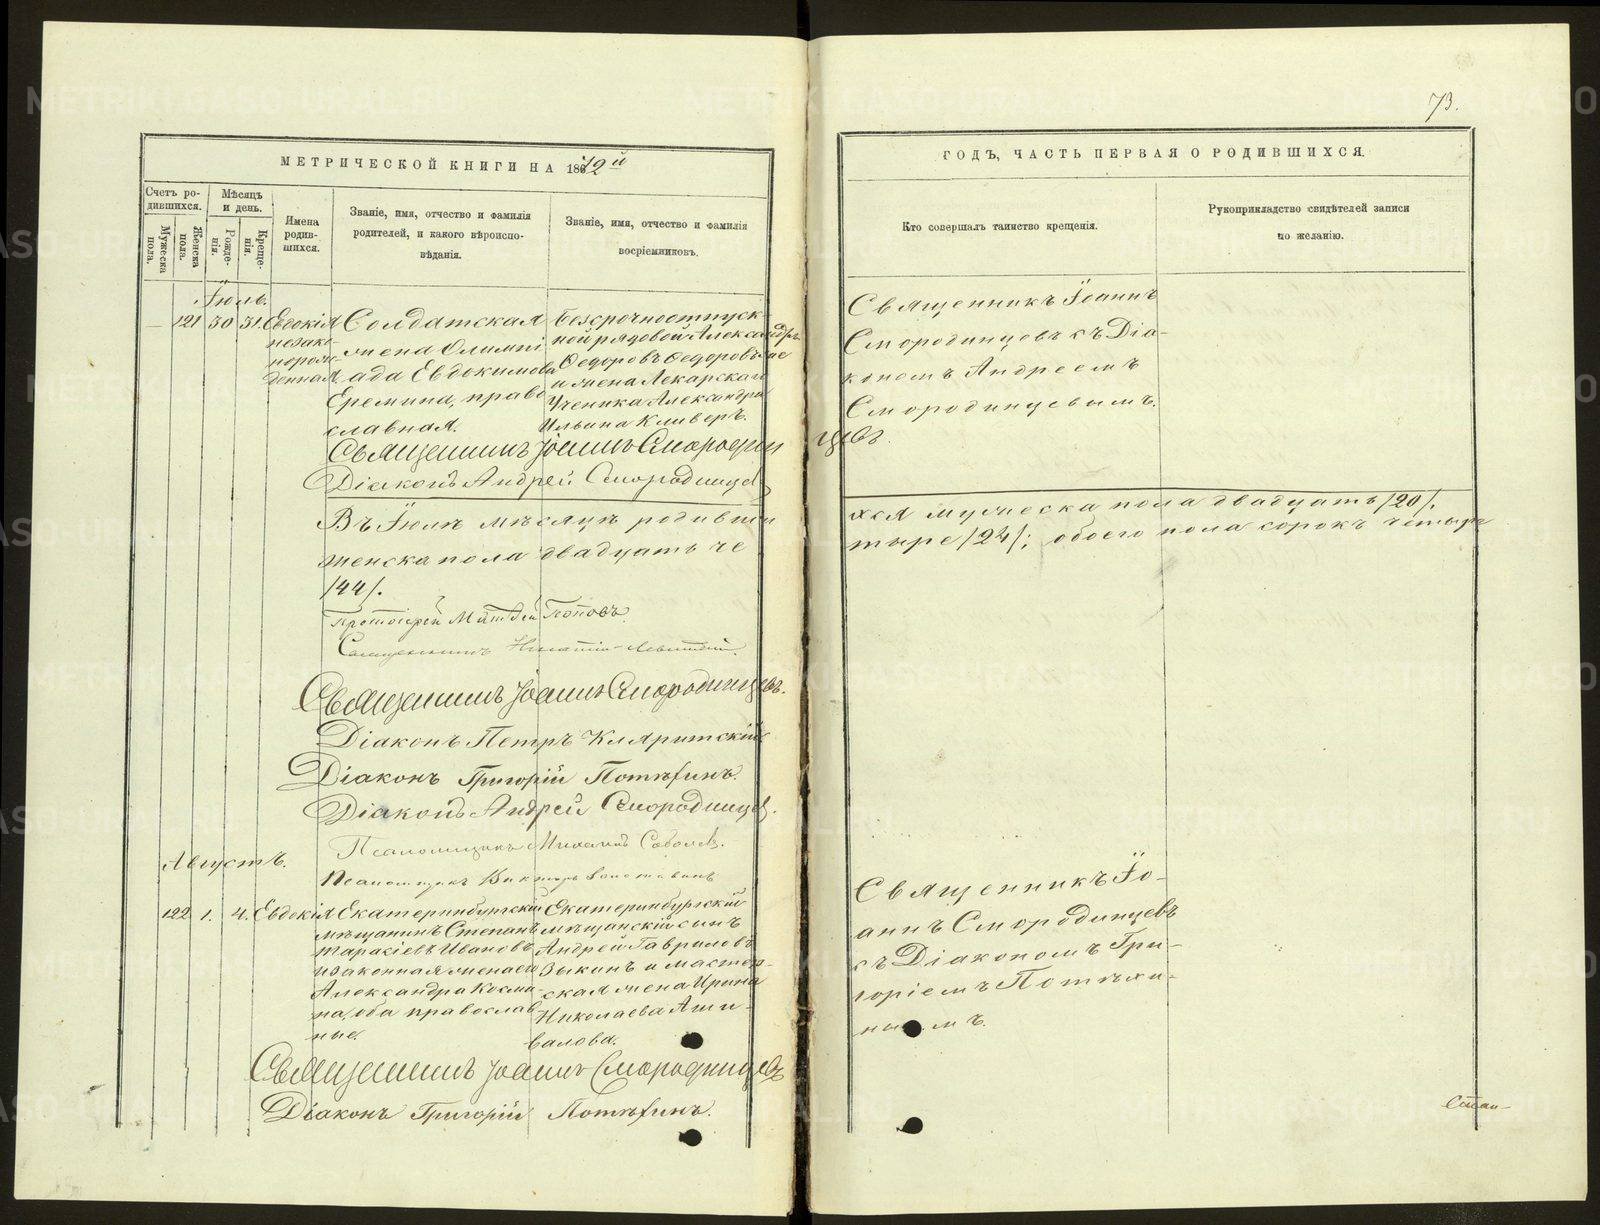 73.
МЕТРИЧЕСКОЙ КНИГИ НА 1872й
ГОДЪ, ЧАСТЬ ПЕРВАЯ О РОДИВШИХСЯ.
Счетъ ро-
дившихся.
Мужеска пола.
Женска пола.
Мѣсяцъ
и день.
Рожде-
нія.
Креще-
нія.
Имена
родив-
шихся.
Званіе, имя, отчество и фамилія
родителей, и какого вѣроиспо-
вѣданія.
Званіе, имя, отчество и фамилія
воспріемниковъ.
Кто совершалъ таинство крещенія.
Рукоприкладство свидѣтелей записи
по желанію.
Іюль.
121 30 31.
Евдокія
незако-
норож-
денная
Солдатская
жена Олимпі
ада Евдокимова
Еремина, право
славная.
Безсрочноотпуск-
ной рядовой Александръ
Ѳедоровъ Ѳедоровъ же
и жена Лекарскаго
Ученика Александра
Ильина Кливеръ.
Священникъ Іоаннъ
Смородинцовъ съ Діа-
кономъ Андреемъ
Смородинцевымъ.
Священникъ Іоаннъ Смородинцевъ.
Діаконъ Андрей Смородинцев
Въ Іюлѣ мѣсяцѣ родившихся мужеска пола двадцать /20/,
женска пола двадцать четыре /24/; обоего пола сорокъ четыре
/44/.
Протоіерей Матѳей Поповъ.
Священникъ Игнатій Левитскій.
Священникъ Іоаннъ Смородинцевъ.
Діаконъ Петръ Кляритскій
Діаконъ Григорій Потѣхинъ.
Діаконъ Андрей Смородинцев.
Псаломщикъ Михаилъ Соболев.
Псаломщикъ Викторъ
Августъ.
122 1. 4.
Евдокія
Екатеринбургскій
мѣщанинъ Степанъ
Тарасіевъ Ивановъ
и законная жена его
Александра Косми-
на, оба православ
ные.
Екатеринбургскій
мѣщанскій сынъ
Андрей Гавриловъ
Зыкинъ и мастер-
ская жена Ирина
Николаева Аши-
валова.
Священникъ Іо-
аннъ Смородинцевъ
съ Діакономъ Гри-
горіемъ Потѣхи-
нымъ.
Священникъ Іоаннъ Смородинцевъ
Діаконъ Григорій Потѣхинъ.
Степан-
METRIKI.GASO-URAL.RU